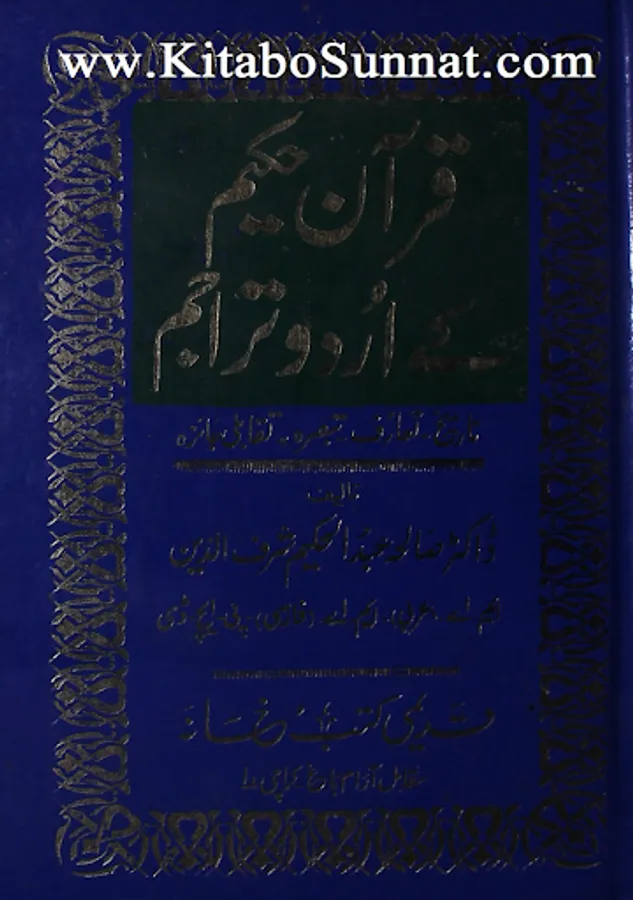 www.KitaboSunnat.com
قرآن حکیم
کے اُردو تراجم
تاریخ ۔ تعارف ۔ تبصرہ ۔ تقابلی جائزہ
تالیف
ڈاکٹر صالحہ عبدالحکیم شرف الدین
ایم اے ۔ (عربی) ۔ ایم اے ۔ (فارسی) پی ۔ ایچ ڈی
قدیمی کتب خانہ
مقابل آرام باغ کراچی ۱